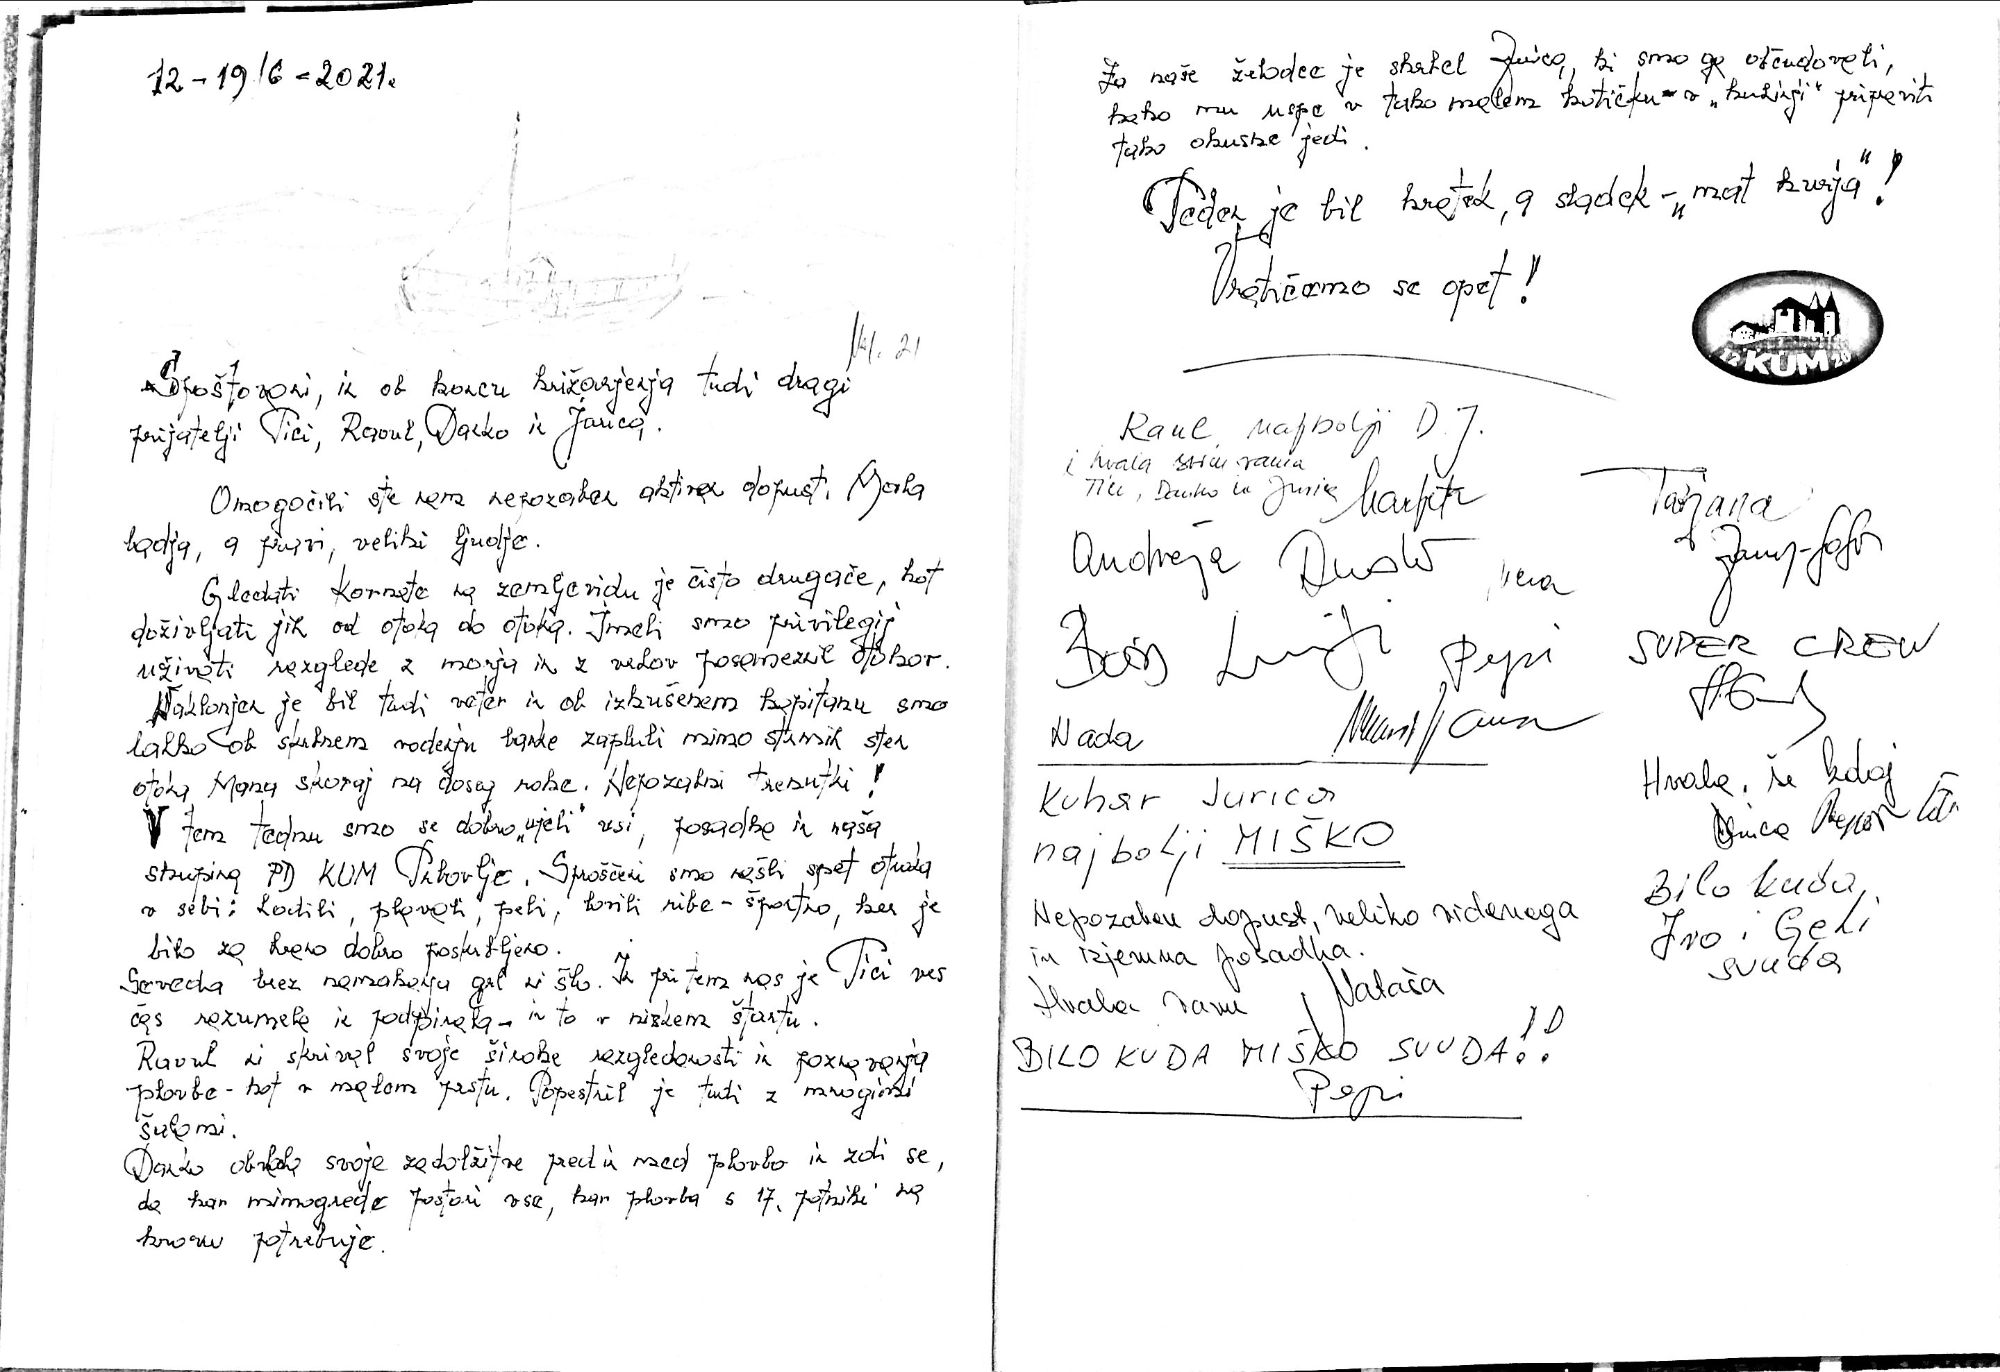 12 - 19/6 - 2021.
Spoštovani, in ob koncu križarjenja tudi dragi
prijatelji Tici, Raoul, Darko in Jurica.
Omogočili ste nam nepozaben aktiven dopust. Mala
ladja, a pravi, veliki ljudje.
Gledati Kornate na zemljevidu je čisto drugače, kot
doživljati jih od otoka do otoka. Imeli smo privilegij
uživati razglede z morja in z vrhov posameznih otokov.
Naklonjen je bil tudi veter in ob izkušenem kapitanu smo
lahko ob skrbnem vodenju barke zapluli mimo strmih sten
otoka Mana skoraj na doseg roke. Nepozabni trenutki!
V tem tednu smo se dobro „ujeli" vsi, posadka in naša
skupina PD KUM Trbovlje. Sproščeni smo našli spet otroka
v sebi: hodili, plavali, peli, lovili ribe - športno, ker je
bilo za hrano dobro poskrbljeno.
Seveda brez namakanja grl ni šlo. In pri tem nas je Tici ves
čas razumela in podpirala - in to v nizkem štartu.
Raoul ni skrival svoje široke razgledanosti in poznavanja
plovbe - kot v malem prstu. Popestril je tudi z mnogimi
šalami.
Darko obvlada svoje zadolžitve pred in med plovbo in zdi se,
da kar mimogrede postori vse, kar plovba s 17. potniki na
krovu potrebuje.
Za naše želodce je skrbel Jurica, ki smo ga občudovali,
kako mu uspe v tako malem kotičku - v „kuhinji" pripraviti
tako okusne jedi.
Teden je bil kratek, a sladek - „mat kvrja"!
Vratićemo se opet!
KUM
Raul najbolji D.J.
i hvala svim vama
Tici, Darko in Jurica Marjeta
Tatjana
Andreja Darko
Boris Pepi
SUPER CREW
Nada
Kuhar Jurica
najbolji MIŠKO
Hvala, še kdaj
Nepozaben dopust, veliko videnega
in izjemna posadka.
Hvala vam Nataša
Bilo kuda,
Ivo i Geli
svuda
BILO KUDA MIŠKO SVUDA!!
Pepi